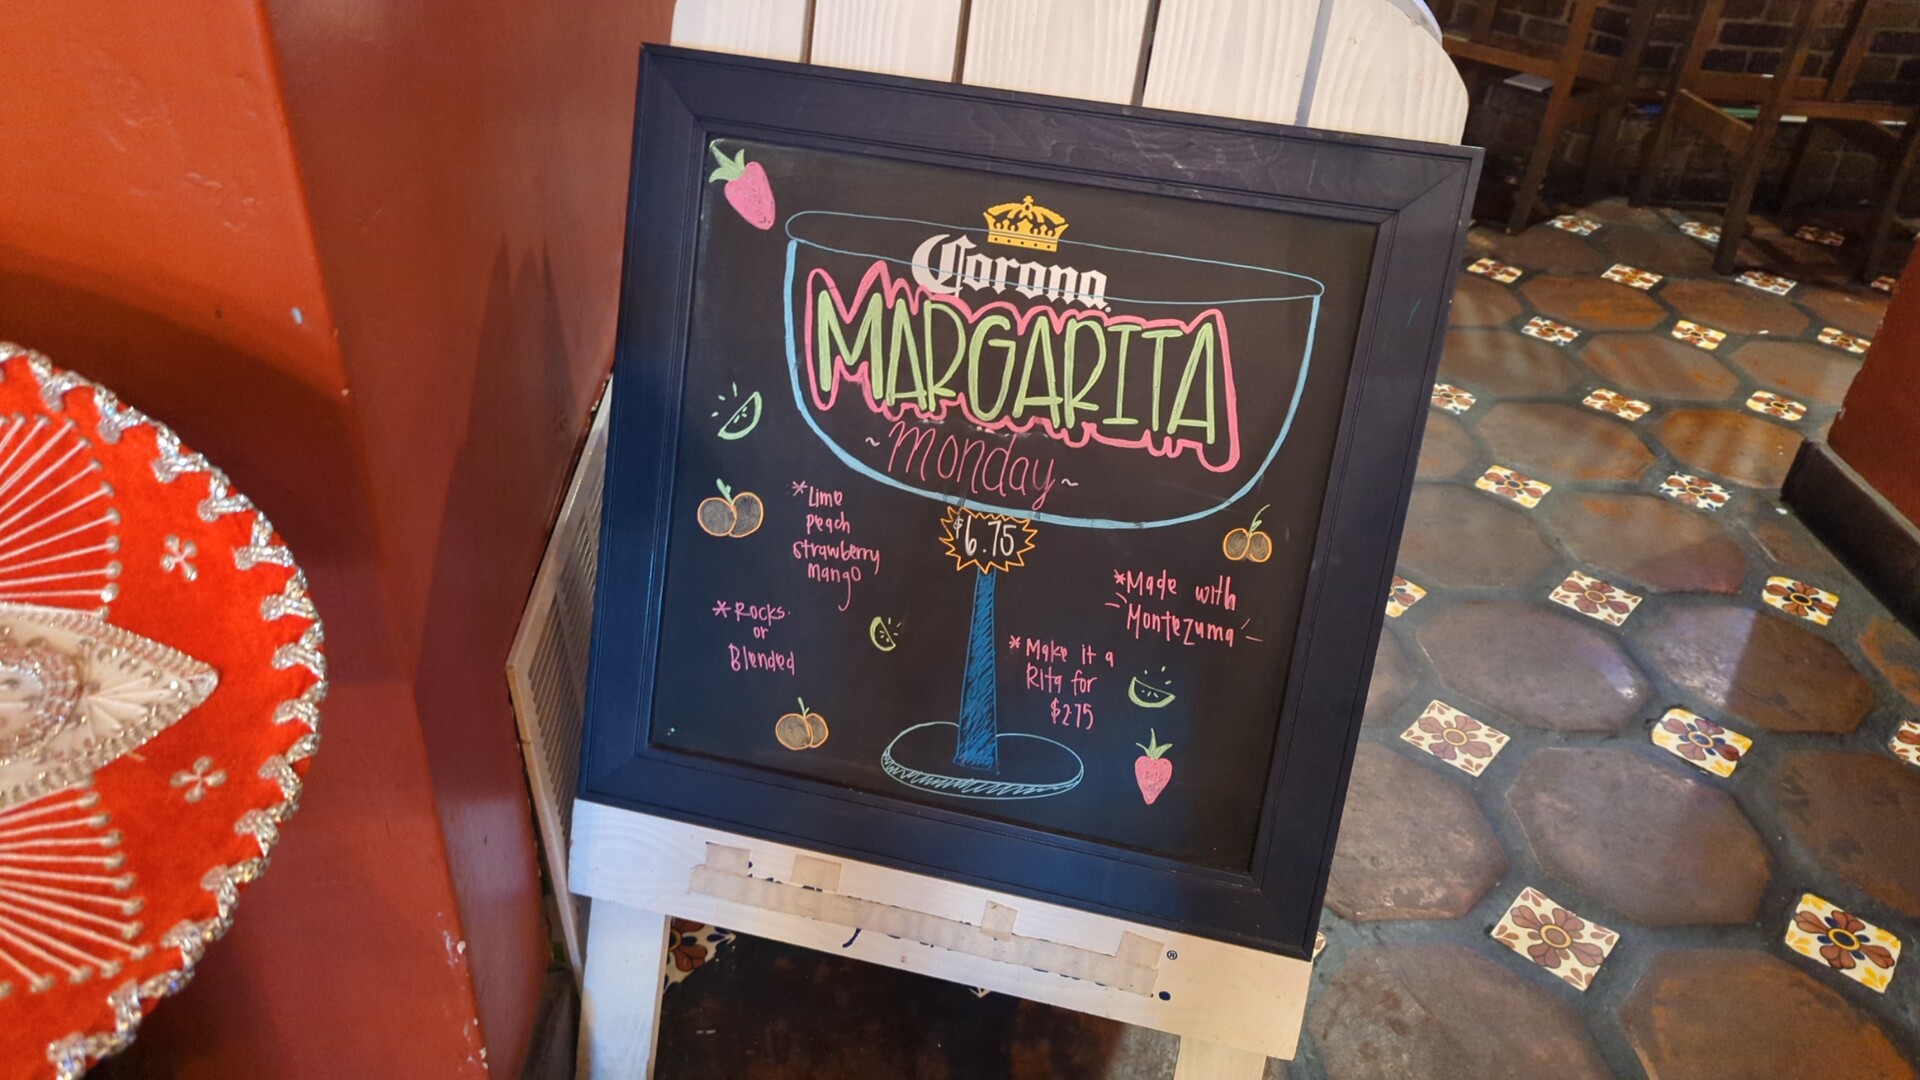 Corona
MARGARITA
~Monday~
$6.75
*Lime
peach
strawberry
mango
*Rocks
or
Blended
*Made with
Montezuma
*Make it a
Rita for
$2.75
®